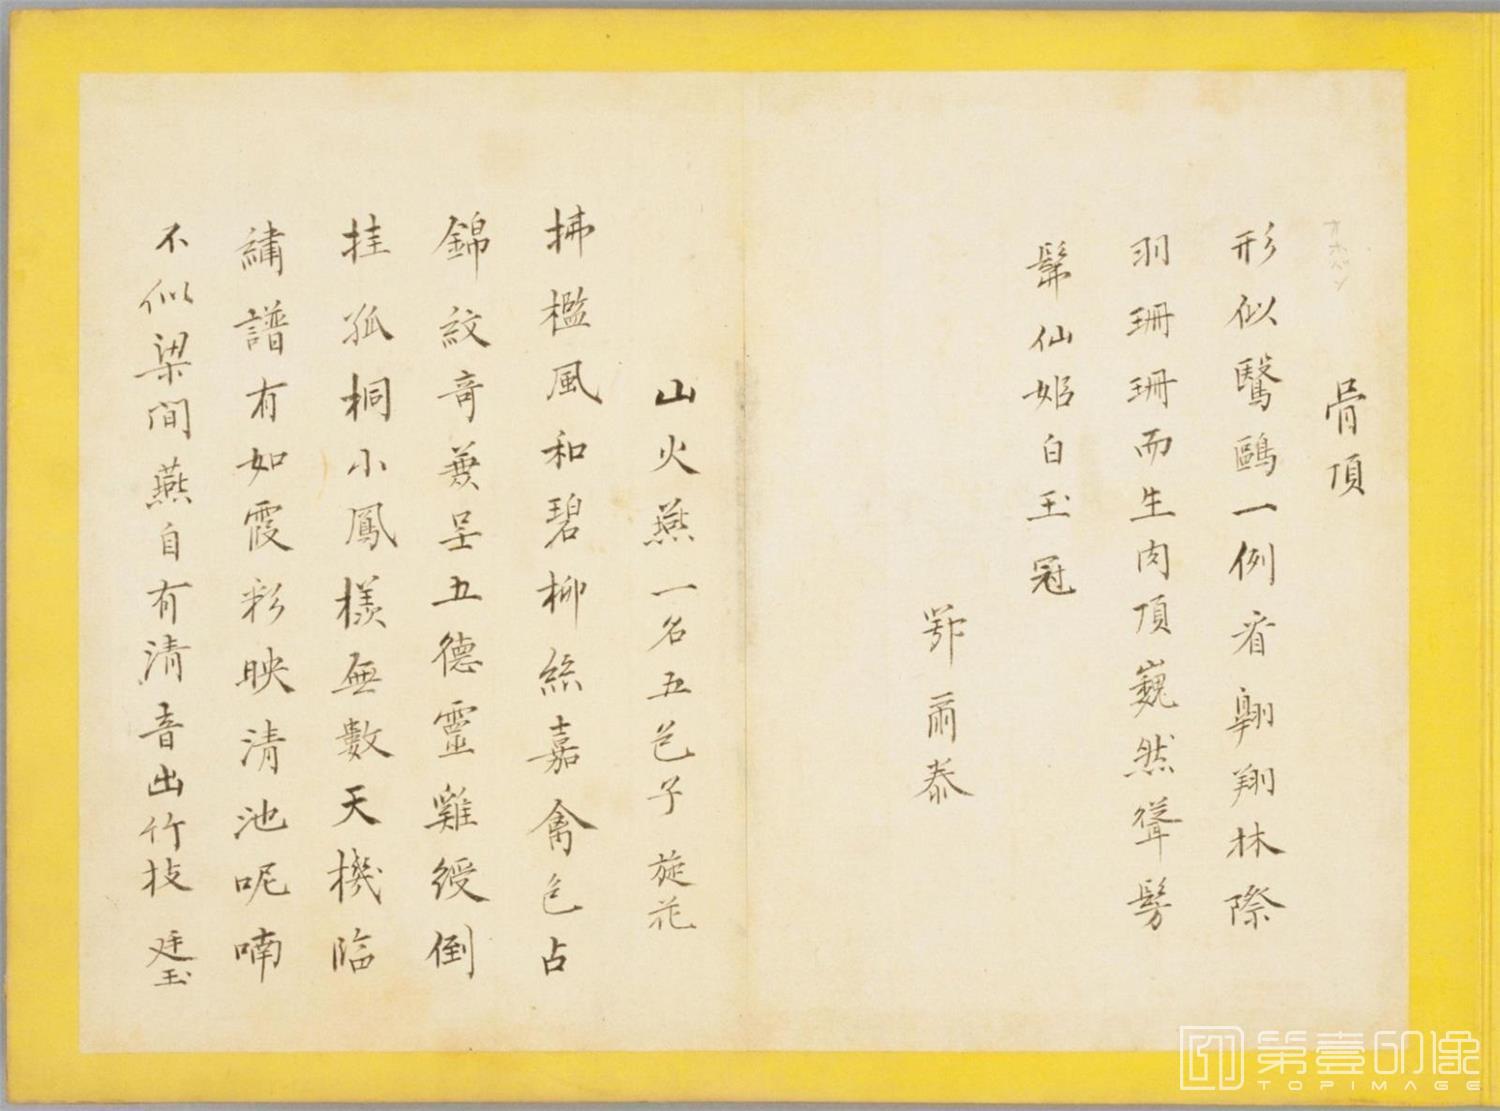 骨頂
形似鷖鷗一例看翺翔林際
羽珊珊而生肉頂巍然聳髣
髴仙姬白玉冠
鄂爾泰
山火燕一名五色子 旋花
拂檻風和碧柳絲嘉禽色占
錦紋奇兼呈五德靈雞綬倒
挂孤桐小鳳樣無數天機臨
繡譜有如霞彩映清池呢喃
不似梁間燕自有清音出竹枝 廷玉
第壹印像
TOPIMAGE